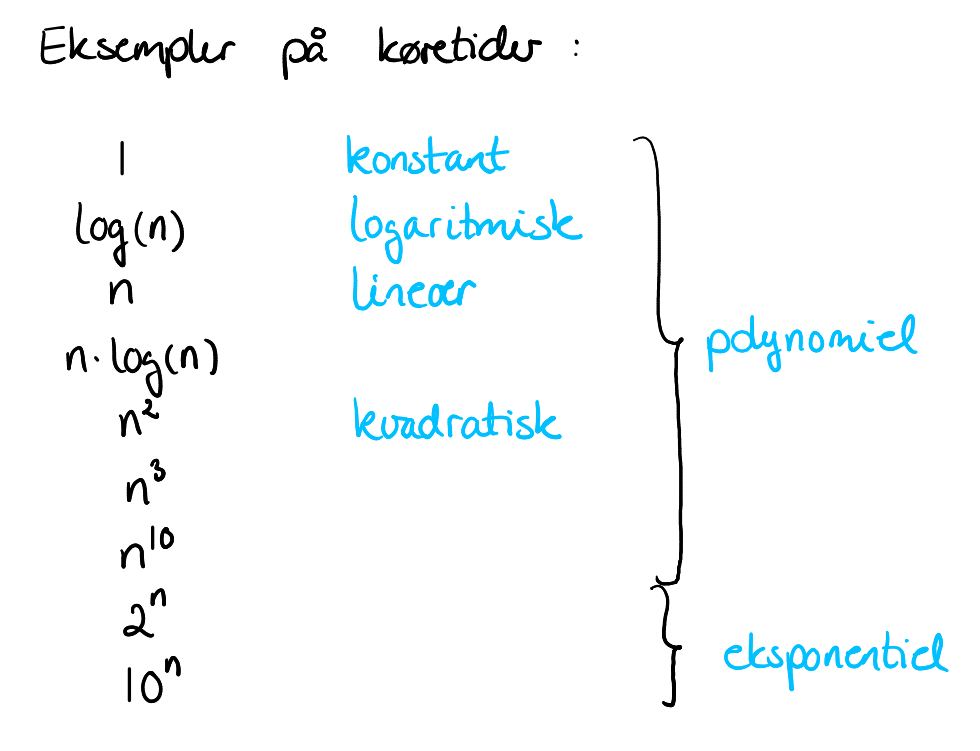 Eksempler på køretider :
1 konstant
log(n) logaritmisk
n lineær
n·log(n)
polynomiel
n² kvadratisk
n³
n¹⁰
2ⁿ
10ⁿ eksponentiel